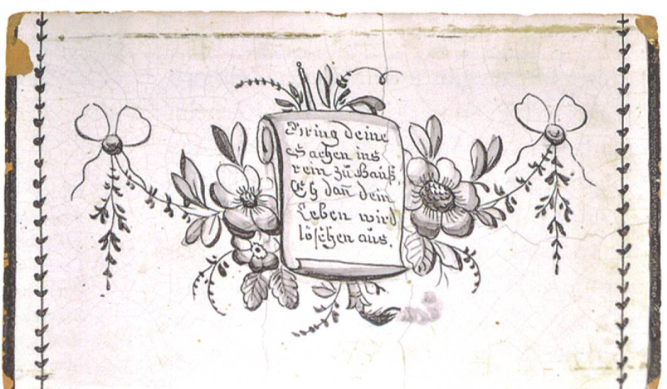 Bring deine
Sachen ins
rein zu Hauß,
Eh dañ dein
Leben wird
löschen aus.